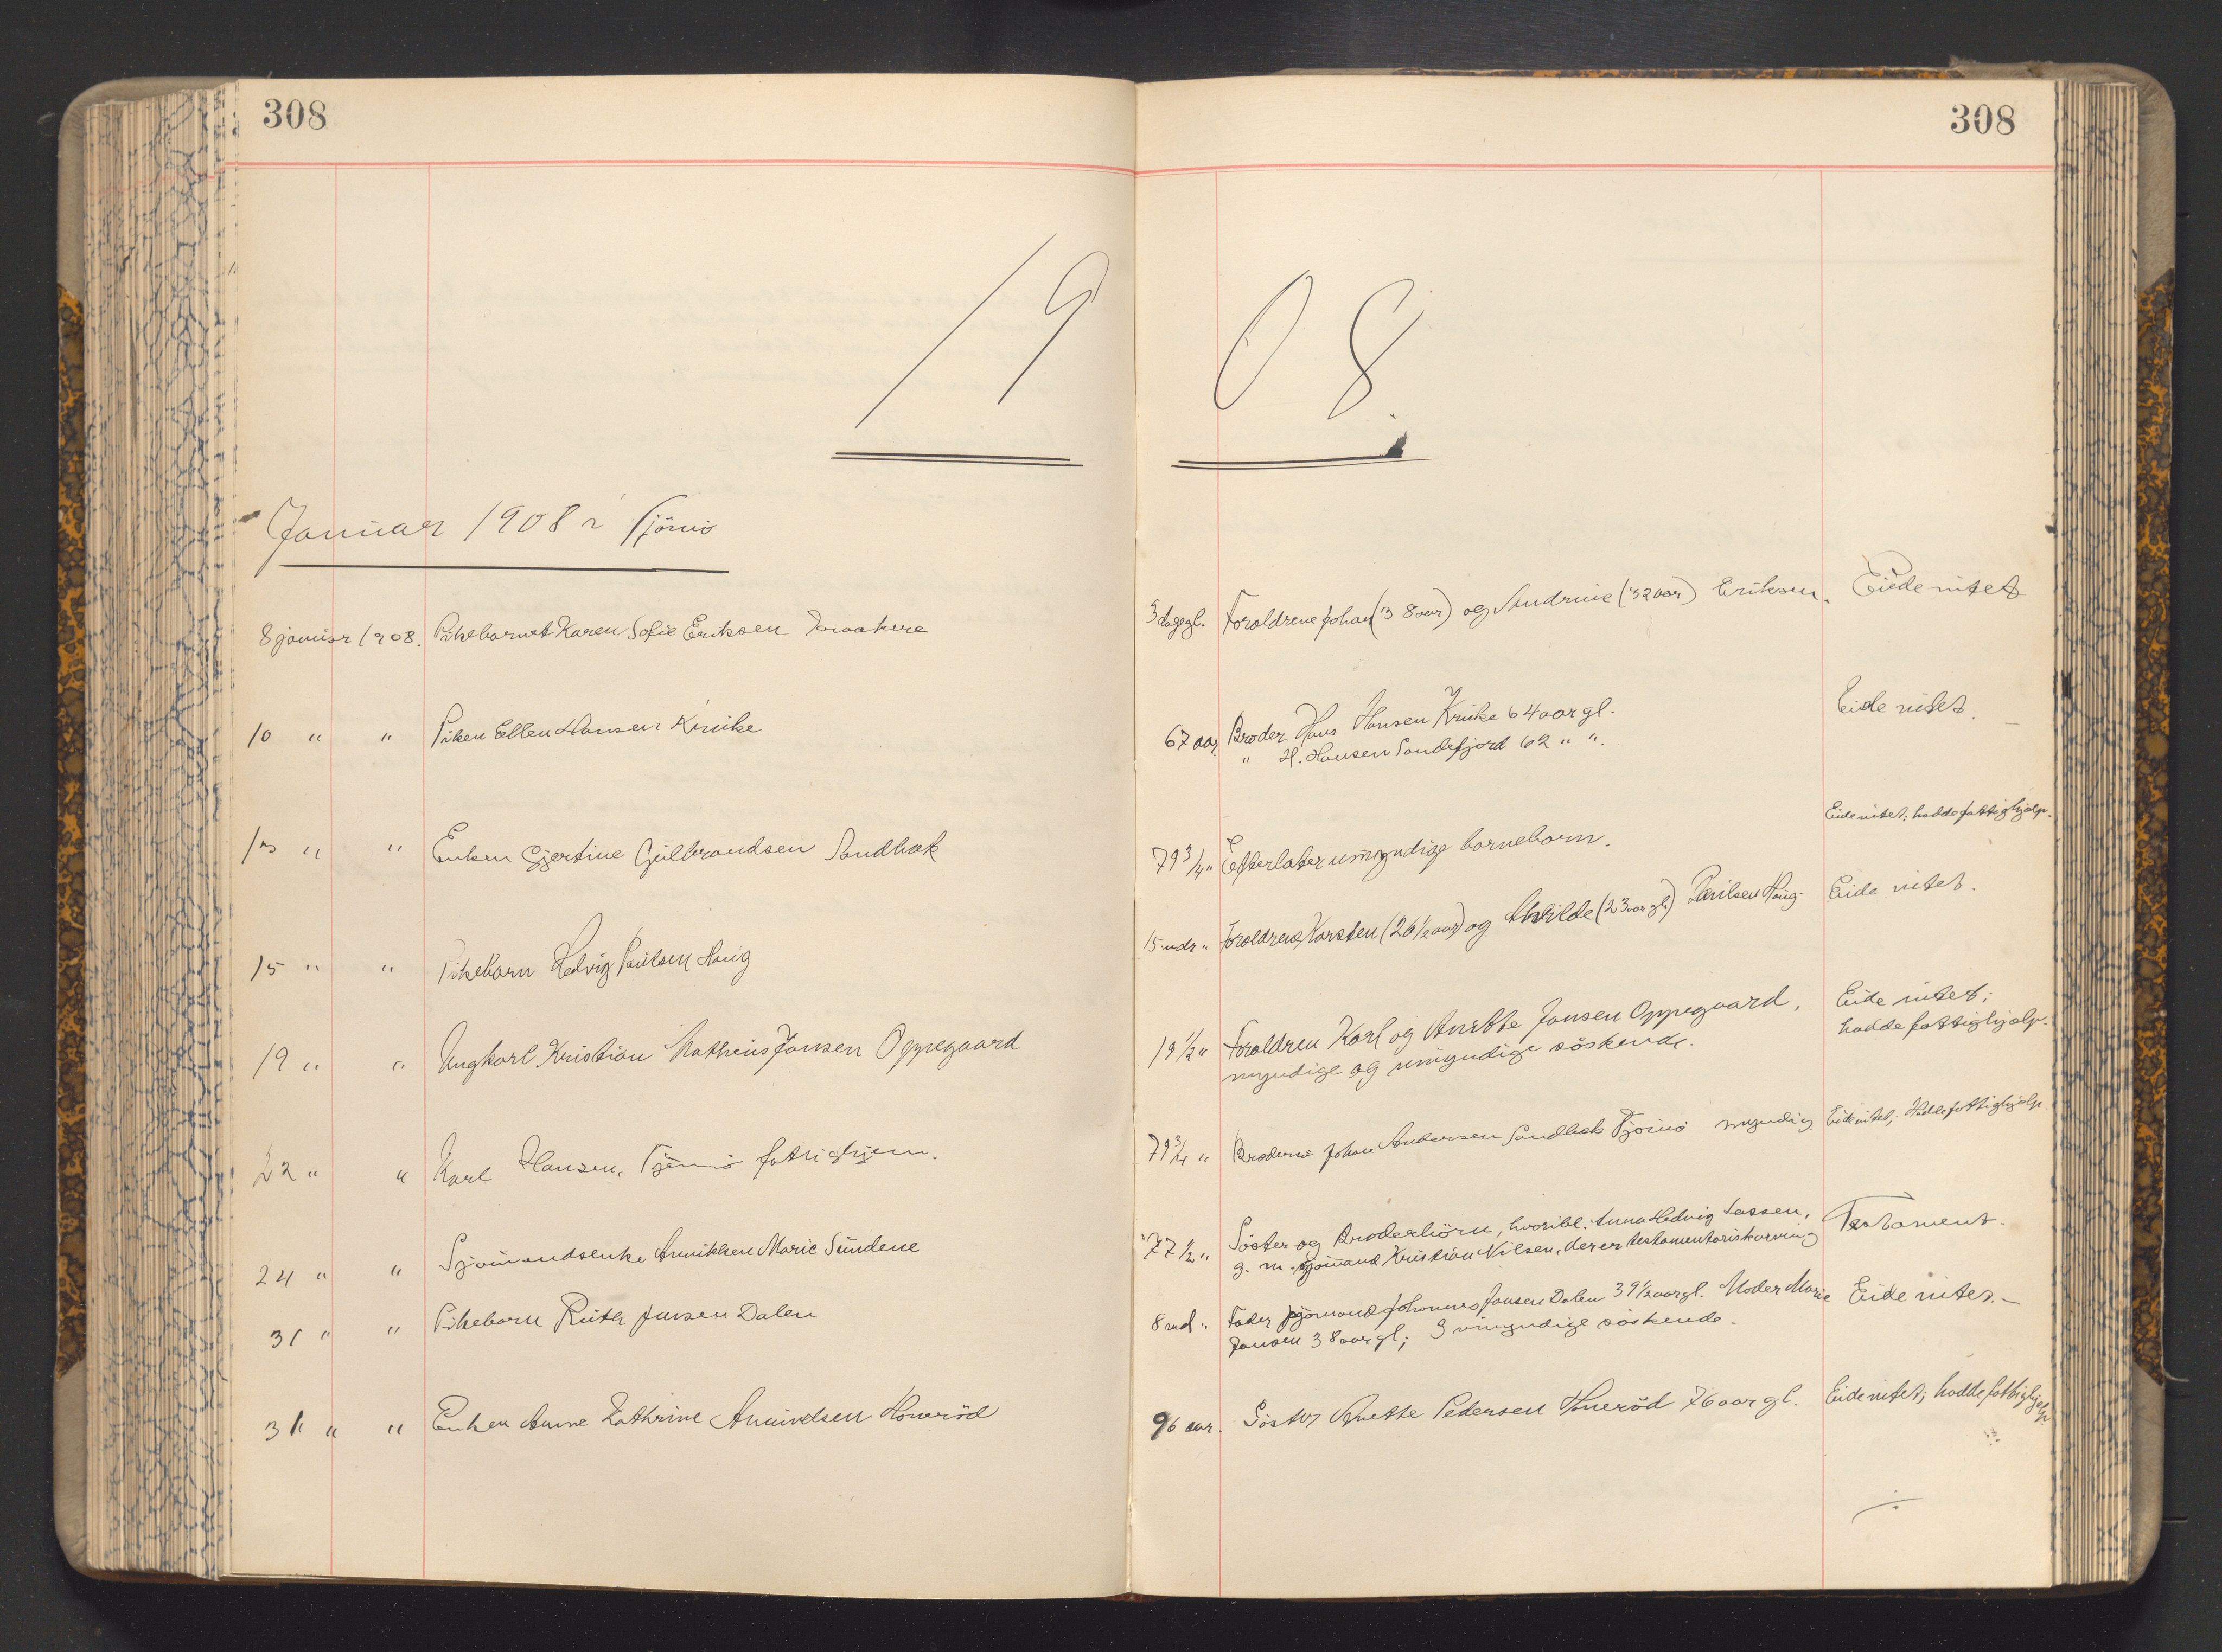 308
308
1908.
Januar 1908 i Tjömö
8 januar 1908. Pikebarnet Karen Sofie Eriksen
3 dage gl. Foroldrene Johan (38 aar) og Sandrine (32 aar) Eriksen. Eiede intet
10 " " Piken Ellen Hansen Kruke
67 aar. Broder Hans Hansen Kruke 64 aar gl. Eide intet.
" H. Hansen Sandefjord 62 " ".
13 " " Enken Gjertine Gulbrandsen Sandbæk
79 3/4 " Efterlater umyndige barnebarn. Eide intet; hadde fattighjælp.
15 " " Pikebarn Hedvig Paulsen Haug
15 mdr " Foroldrene Karsten (26 1/2 aar) og (23 aar gl.) Paulsen Haug Eide intet.
19 " " Ungkarl Kristian Matheus Jansen Oppegaard
19 1/2 " Foroldren Karl og Anette Jansen Oppegaard, Eide intet;
myndige og umyndige söskende. hadde fattighjælp.
22 " " Karl Hansen, Tjömö fattighjem.
79 3/4 " Johan Andersen Sandbæk Tjömö myndig. Eide intet; Hadde fattighjælp.
24 " " Sjömandsenke Annikken Marie Sundene
77 1/2 " Söster og Broderbörn, hvoribl. Anna Hedvig Lassen, Testament.
g. m. sjömand Kristian Nilsen, der er testamentarisk arving
31 " " Pikebarn Ruth Jansen Dalen
8 md " Fader sjömand Johannes Jansen Dalen 39 1/2 aar gl. Moder Marie Eide intet. -
Jansen 38 aar gl; 3 umyndige söskende.
31 " " Enken Anne Kathrine Amundsen Honeröd
96 aar. Söster Anette Pedersen Honeröd 76 aar gl. Eide intet; hadde fattighjælp.